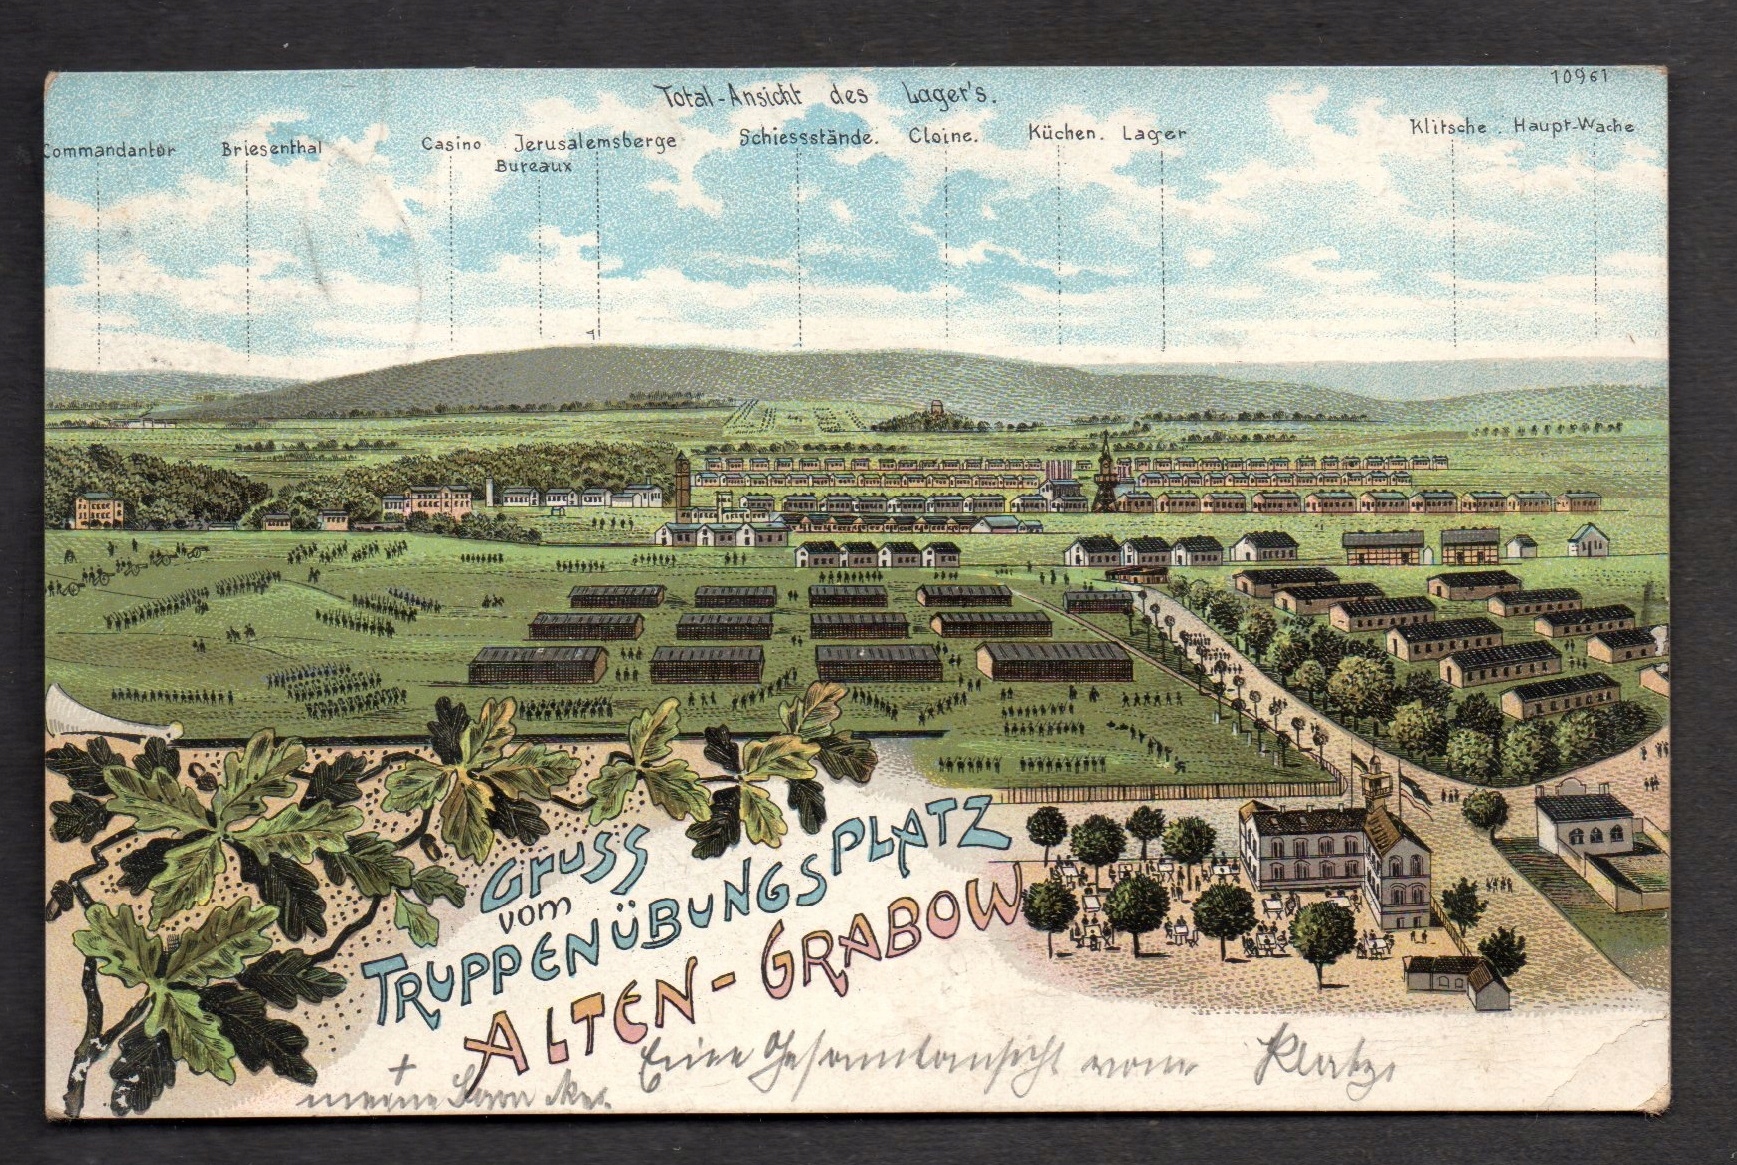 10961
Total-Ansicht des Lager's.
Commandantur Briesenthal Casino Jerusalemsberge Schiessstände. Cloine. Küchen. Lager Klitsche. Haupt-Wache
Bureaux
Gruss
vom
Truppenübungsplatz
Alten-Grabow
Eine Gesamtansicht vom Platz.
meine